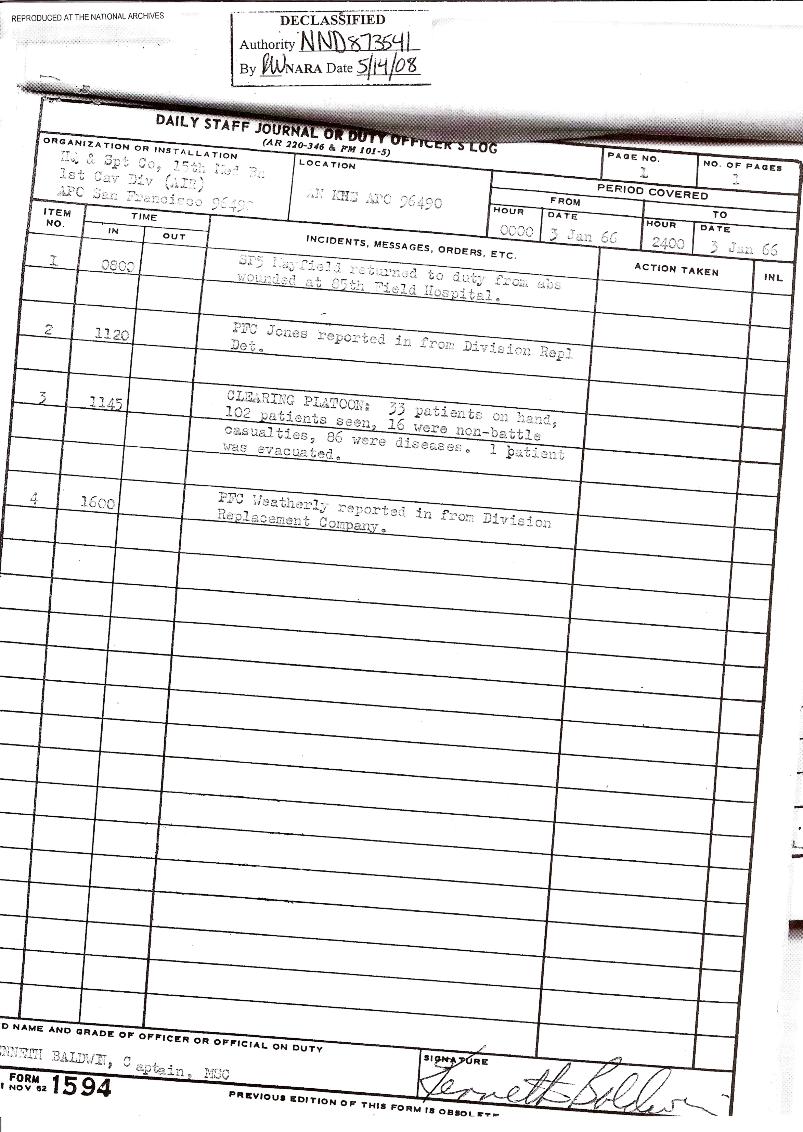 REPRODUCED AT THE NATIONAL ARCHIVES
DECLASSIFIED
Authority NND873541
By NARA Date 5/14/08
DAILY STAFF JOURNAL OR DUTY OFFICER'S LOG
(AR 220-346 & FM 101-5)
PAGE NO.
1
NO. OF PAGES
1
ORGANIZATION OR INSTALLATION
Hq & Spt Co, 15th Med Bn
1st Cav Div (AIR)
APO San Francisco 96490
LOCATION
AN KHE APO 96490
PERIOD COVERED
FROM
TO
HOUR
0000
DATE
3 Jan 66
HOUR
2400
DATE
3 Jan 66
ITEM NO.
TIME
IN
OUT
INCIDENTS, MESSAGES, ORDERS, ETC.
ACTION TAKEN
INL
1 0800 SP5 Mayfield returned to duty from abs
wounded at 85th Field Hospital.
2 1120 PFC Jones reported in from Division Repl
Det.
3 1145 CLEARING PLATOON: 33 patients on hand,
102 patients seen, 16 were non-battle
casualties, 86 were diseases. 1 patient
was evacuated.
4 1600 PFC Weatherly reported in from Division
Replacement Company.
D NAME AND GRADE OF OFFICER OR OFFICIAL ON DUTY
NNETH BALDWIN, Captain, MSC
SIGNATURE
Kenneth Baldwin
FORM
1 NOV 62 1594
PREVIOUS EDITION OF THIS FORM IS OBSOLETE